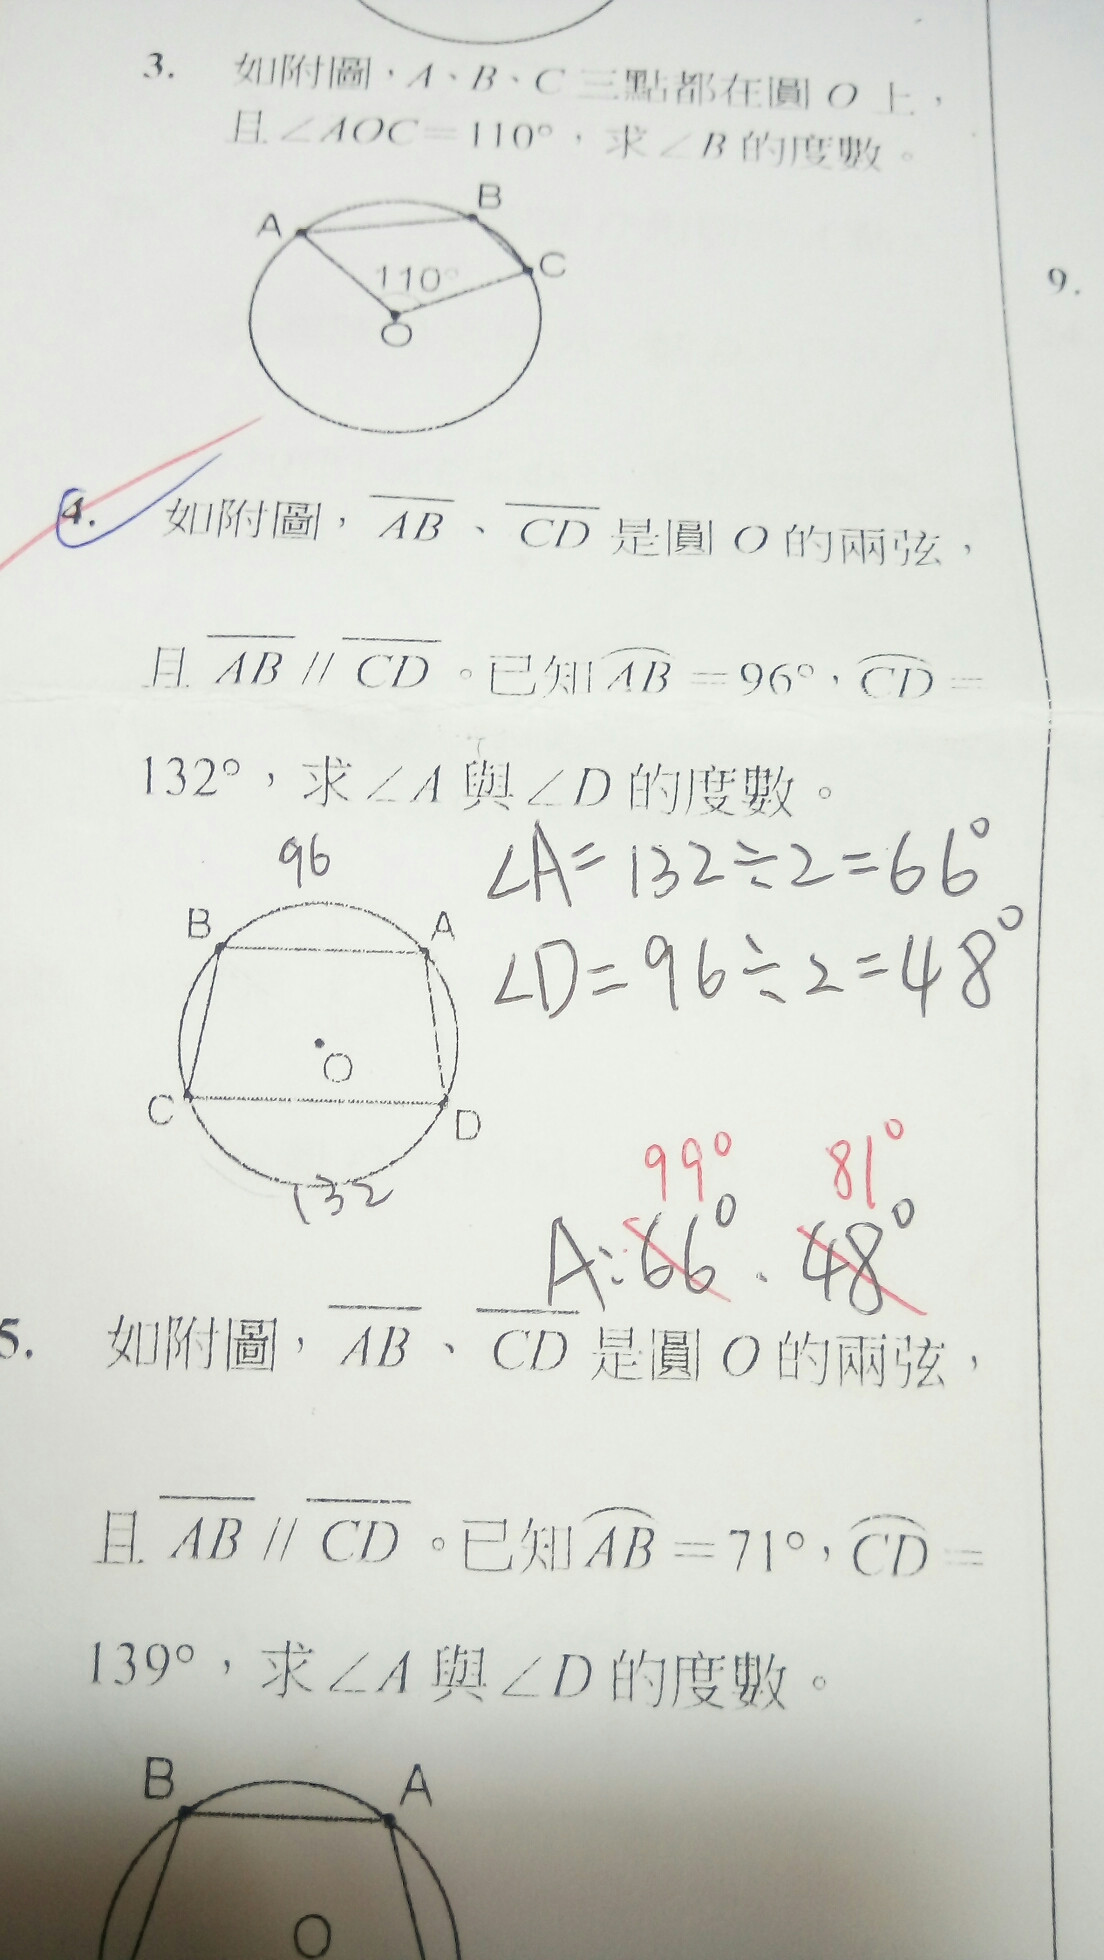 3. 如附圖，A、B、C 三點都在圓 O 上，
且∠AOC=110°，求∠B 的度數。
B
A
110°
C
O
9.
4. 如附圖，AB、CD 是圓 O 的兩弦，
且 AB // CD。已知 AB=96°，CD=
132°，求∠A 與∠D 的度數。
96
∠A=132÷2=66°
B A
∠D=96÷2=48°
O
C D
132
99° 81°
A:66°、48°
5. 如附圖，AB、CD 是圓 O 的兩弦，
且 AB // CD。已知 AB=71°，CD=
139°，求∠A 與∠D 的度數。
B A
O